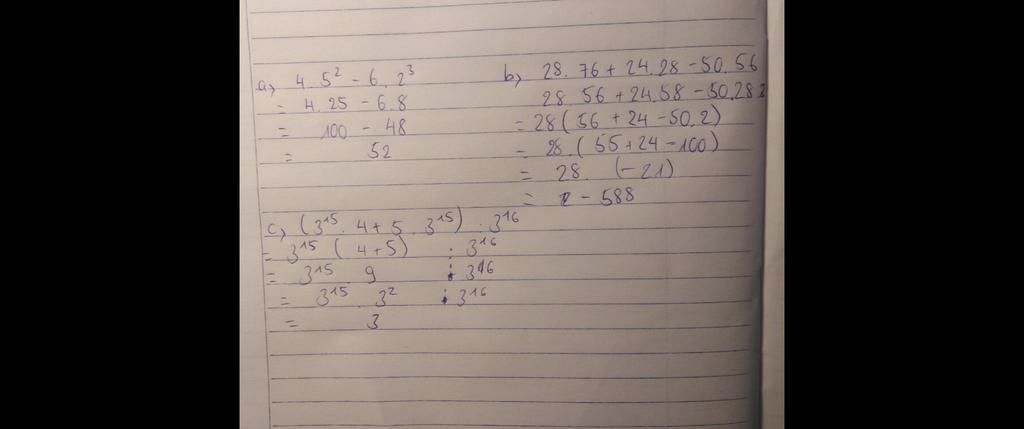 a, 4.5² - 6.2³
= 4.25 - 6.8
= 100 - 48
= 52
b, 28.76 + 24.28 - 50.56
28.56 + 24.58 - 50.28.2
= 28(56 + 24 - 50.2)
= 28.(55 + 24 - 100)
= 28. (-21)
= - 588
c, (3¹⁵. 4 + 5.3¹⁵) : 3¹⁶
= 3¹⁵ (4+5) : 3¹⁶
= 3¹⁵ . 9 : 3¹⁶
= 3¹⁵ . 3² : 3¹⁶
= 3